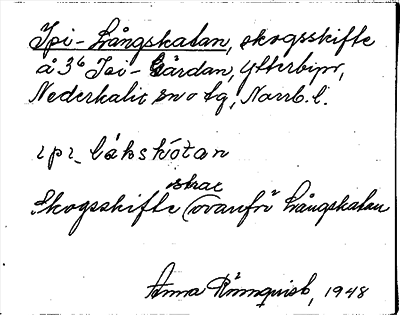 Ipi-Långskatan, skogsskifte
å 3⁶ Ipi-Gårdan, Ytterbyn,
Nederkalix sn o tg, Norrb. l.
ɪpɪ- låkskótan
Skogsskifte (ovanför Långskatan
Anna Rönnquist, 1948